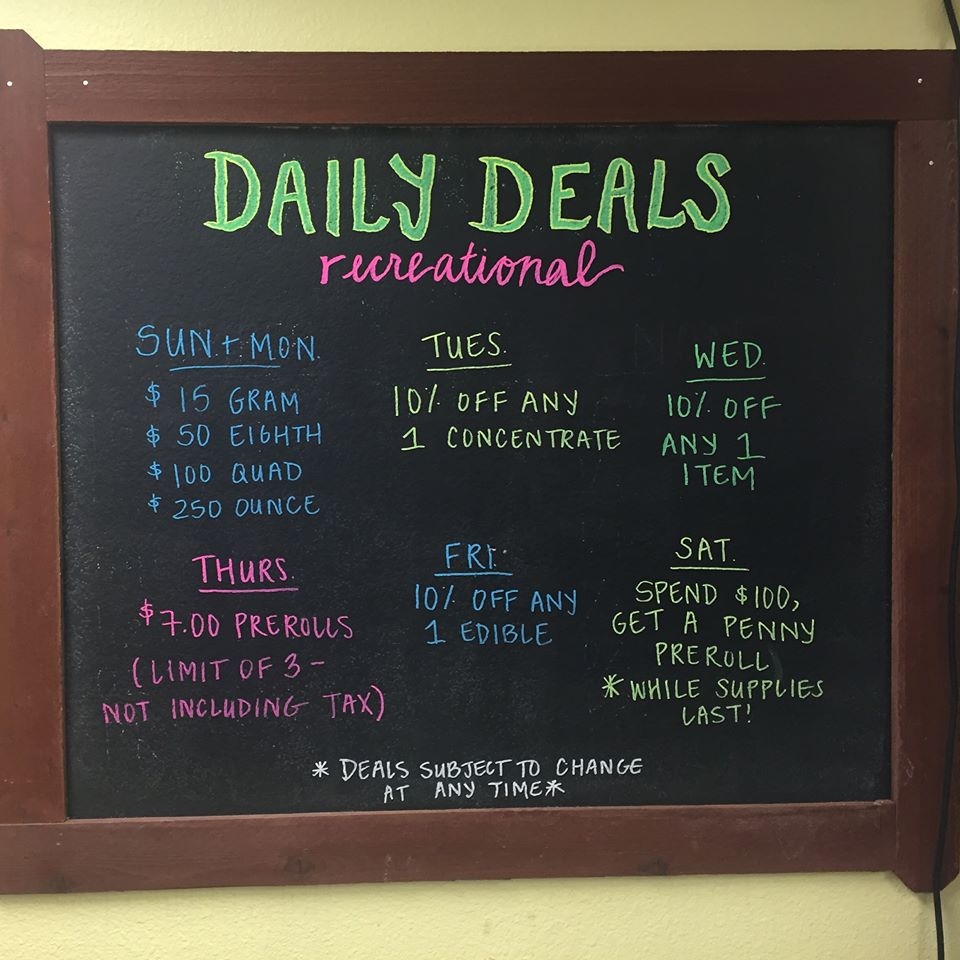 DAILY DEALS
recreational
SUN + MON.
$ 15 GRAM
$ 50 EIGHTH
$ 100 QUAD
$ 250 OUNCE
TUES.
10% OFF ANY
1 CONCENTRATE
WED.
10% OFF
ANY 1
ITEM
THURS.
$7.00 PREROLLS
(LIMIT OF 3 -
NOT INCLUDING TAX)
FRI.
10% OFF ANY
1 EDIBLE
SAT.
SPEND $100,
GET A PENNY
PREROLL
* WHILE SUPPLIES
LAST!
* DEALS SUBJECT TO CHANGE
AT ANY TIME *